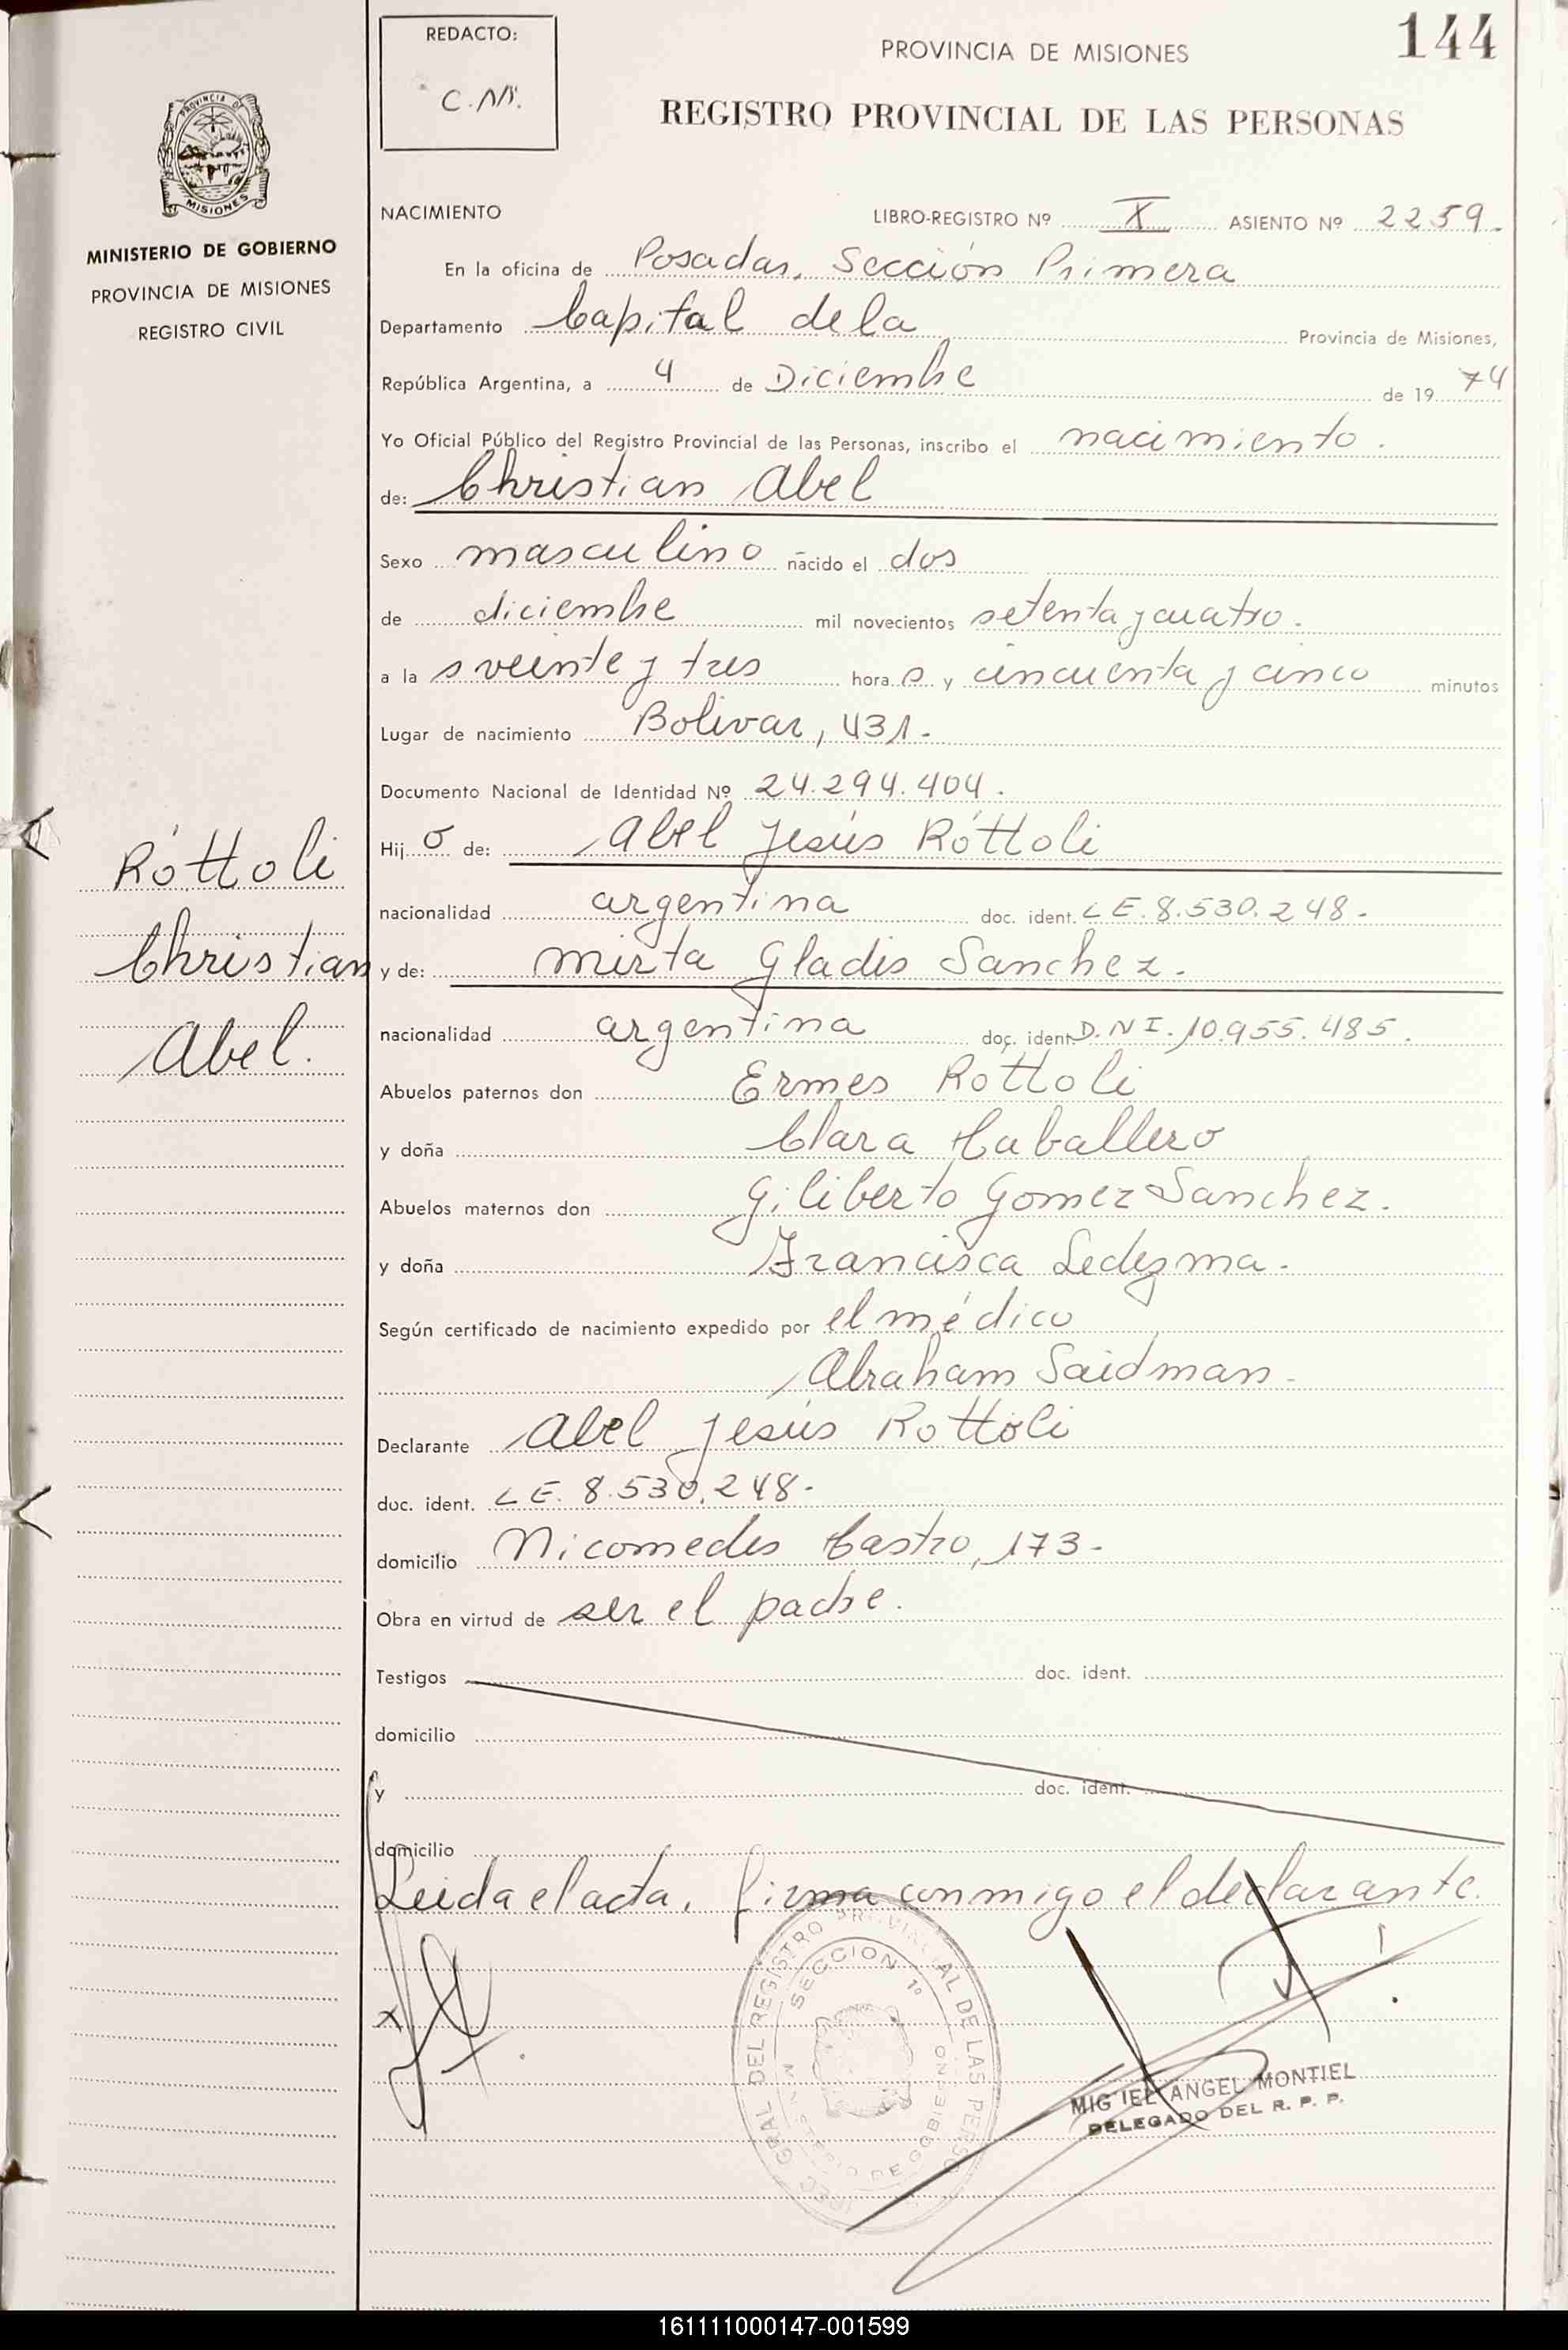 REDACTO:
C.M.
PROVINCIA DE MISIONES
144
REGISTRO PROVINCIAL DE LAS PERSONAS
PROVINCIA DE
MISIONES
MINISTERIO DE GOBIERNO
PROVINCIA DE MISIONES
REGISTRO CIVIL
NACIMIENTO LIBRO-REGISTRO Nº X ASIENTO Nº 2259.
En la oficina de Posadas, Sección Primera
Departamento Capital de la Provincia de Misiones,
República Argentina, a 4 de Diciembre de 19 74
Yo Oficial Público del Registro Provincial de las Personas, inscribo el nacimiento.
de: Christian Abel
Sexo masculino nacido el dos
de diciembre mil novecientos setenta y cuatro.
a la s veinte y tres hora s y cincuenta y cinco minutos
Lugar de nacimiento Bolivar, 431.-
Documento Nacional de Identidad Nº 24.294.404.
Hij o de: Abel Jesús Róttoli
nacionalidad argentina doc. ident. L E. 8.530.248.-
y de: Mirta Gladis Sanchez.
nacionalidad argentina doc. ident D.N I. 10.955.485.
Abuelos paternos don Ermes Rottoli
y doña Clara Caballero
Abuelos maternos don Giliberto Gomez Sanchez.
y doña Francisca Ledezma.
Según certificado de nacimiento expedido por el médico
Abraham Saidman.
Declarante Abel Jesús Rottoli
doc. ident. L E. 8.530.248.-
domicilio Nicomedes Castro, 173.-
Obra en virtud de ser el padre.
Testigos doc. ident.
domicilio
y doc. ident.
domicilio
Leida el acta, firma conmigo el declarante.
Róttoli
Christian
Abel.
GRAL DEL REGISTRO PROVINCIAL DE LAS PERSO
SECCION 1º
DE GOBIERNO
MIG IEL ANGEL MONTIEL
DELEGADO DEL R. P. P.
161111000147-001599